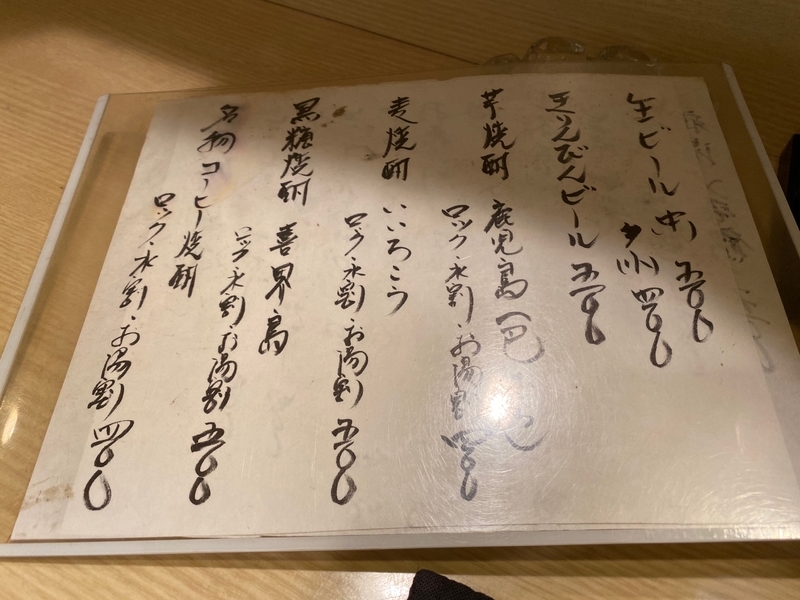 生ビール 中 五〇〇
小 四〇〇
びんビール 五〇〇
芋焼酎 鹿児島
ロック・水割・お湯割 四〇〇
麦焼酎 いいろこう
ロック・水割・お湯割 五〇〇
黒糖焼酎 喜界島
ロック・水割・お湯割 五〇〇
名物 コーヒー焼酎
ロック・水割・お湯割 四〇〇